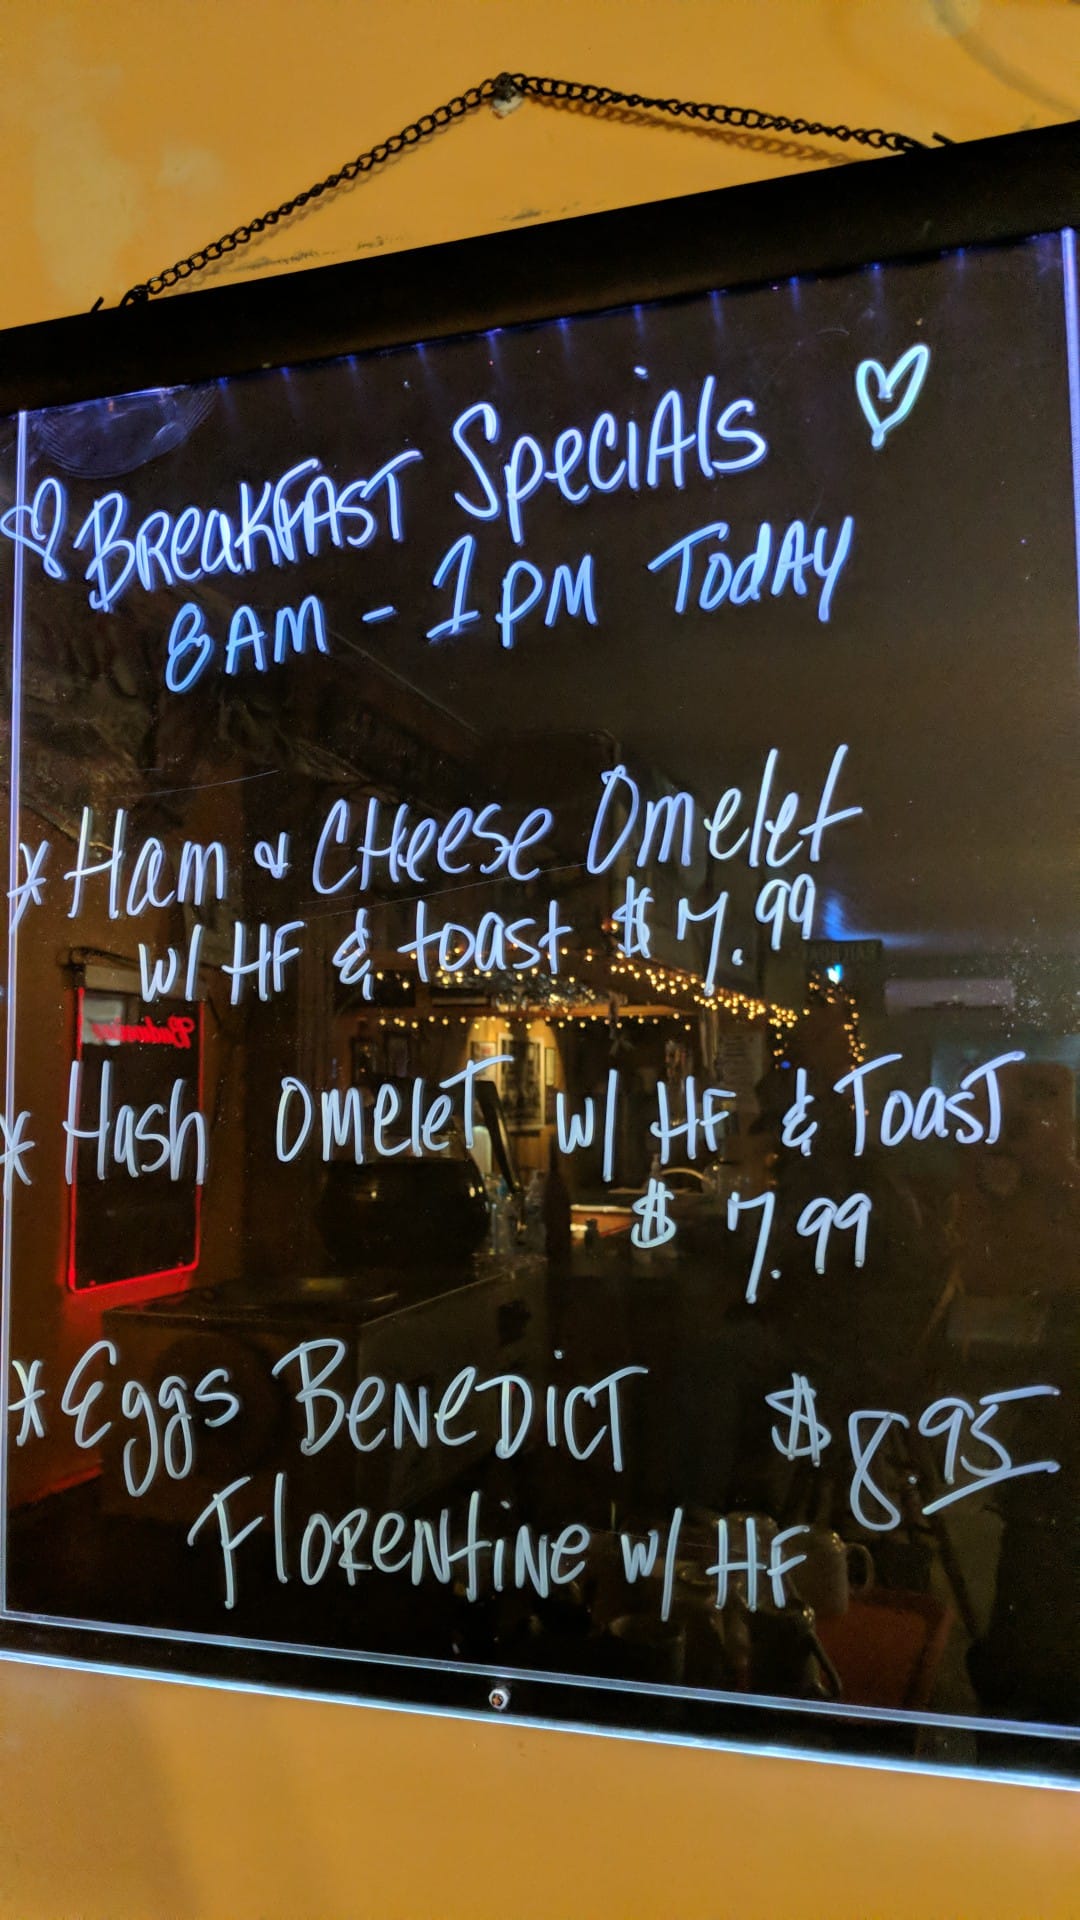 BReaKFAST SpeciAls
8AM - 1PM TodAy
* Ham & CHeese Omelet
w/ HF & toast $7.99
* Hash OMeleT w/ HF & ToasT
$7.99
* Eggs BeNeDicT $8.95
FloReNtiNe w/ HF
Budweiser